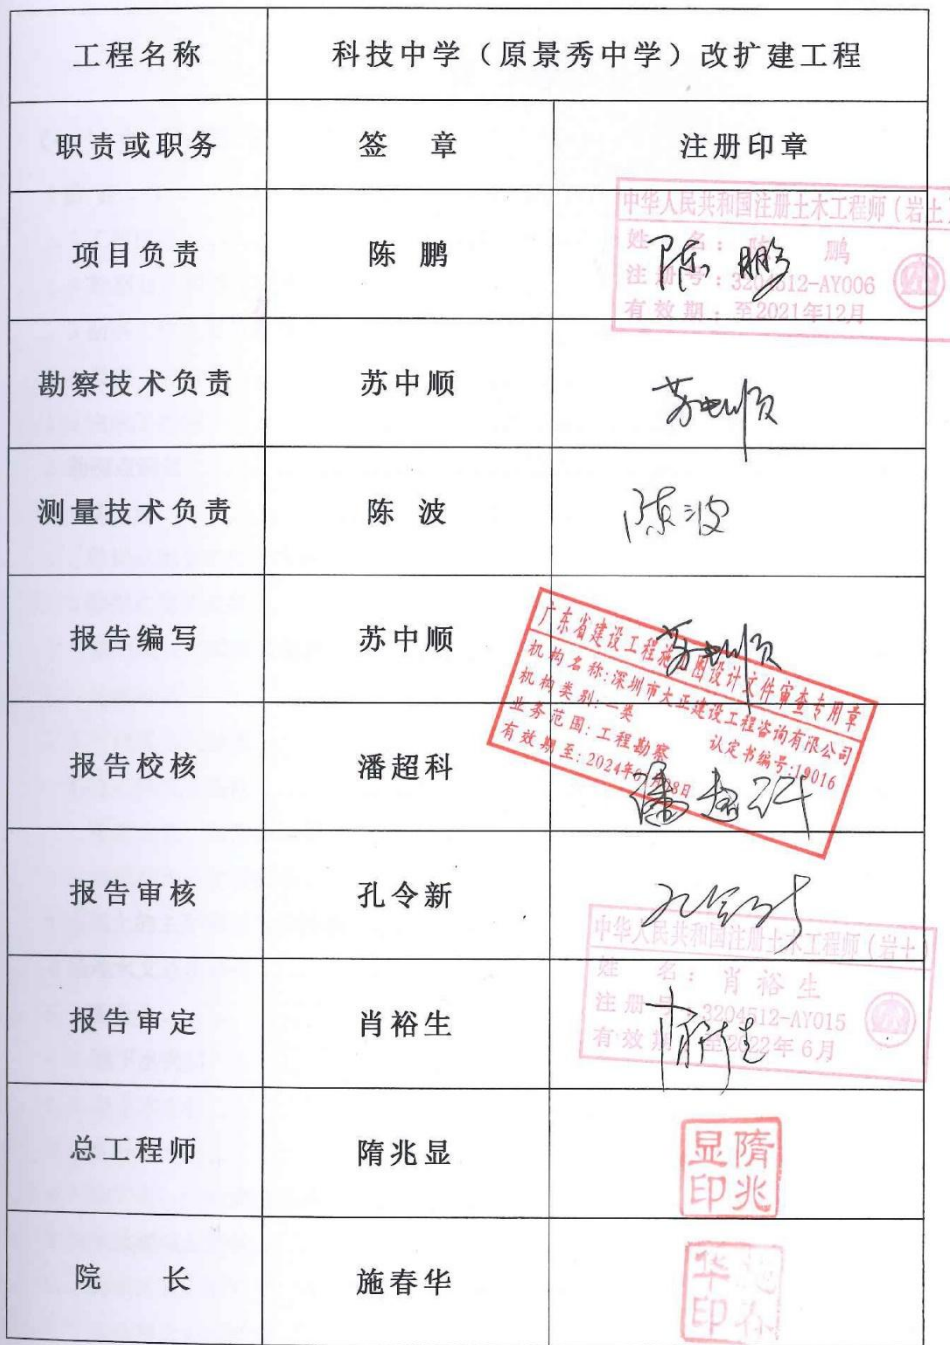 工程名称 科技中学（原景秀中学）改扩建工程
职责或职务 签 章 注册印章
项目负责 陈 鹏 陈鹏
中华人民共和国注册土木工程师（岩土）
姓 名：陈 鹏
注册号：3204512-AY006
有效期：至2021年12月
勘察技术负责 苏中顺 苏中顺
测量技术负责 陈 波 陈波
报告编写 苏中顺 苏中顺
广东省建设工程施工图设计文件审查专用章
机构名称:深圳市大正建设工程咨询有限公司
机构类别:一类 认定书编号:19016
业务范围:工程勘察
有效期至:2024年 月 8日
报告校核 潘超科 潘超科
报告审核 孔令新 孔令新
中华人民共和国注册土木工程师（岩土）
姓 名：肖裕生
注册号：3204512-AY015
有效期：至2022年6月
报告审定 肖裕生 肖裕生
总工程师 隋兆显 隋兆显印
院 长 施春华 施春华印